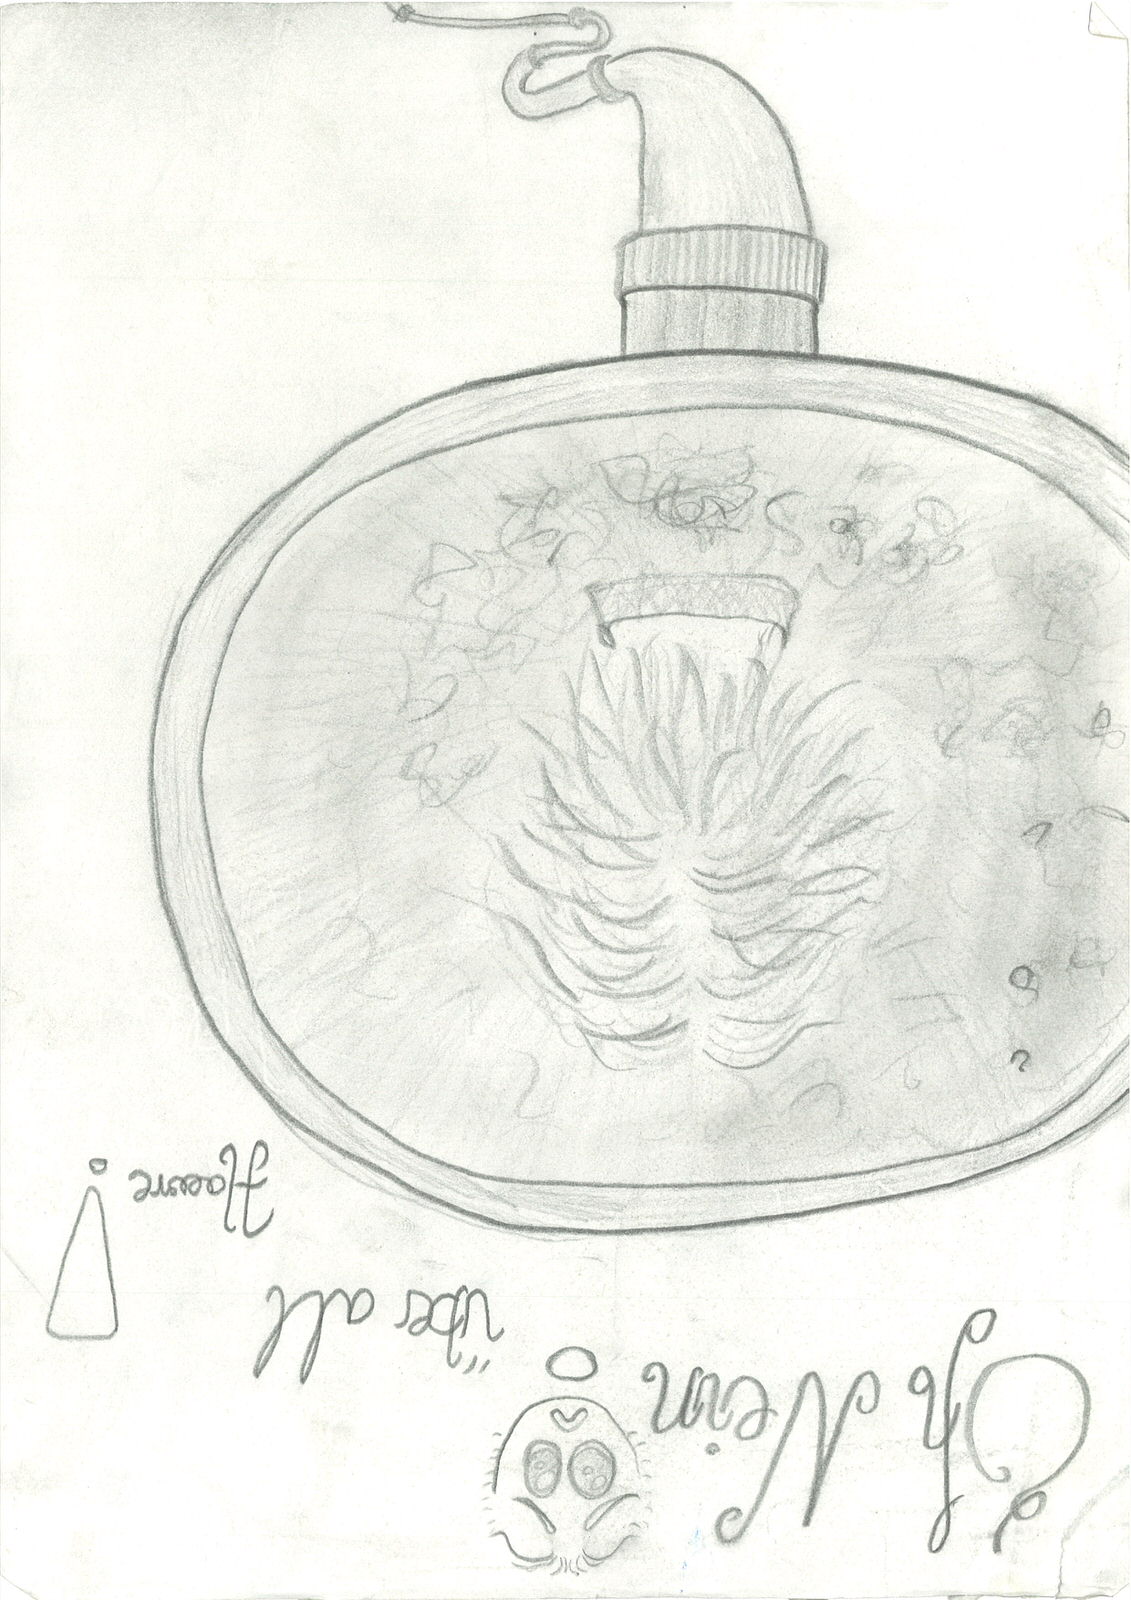 Oh Nein!
über all
Haare!